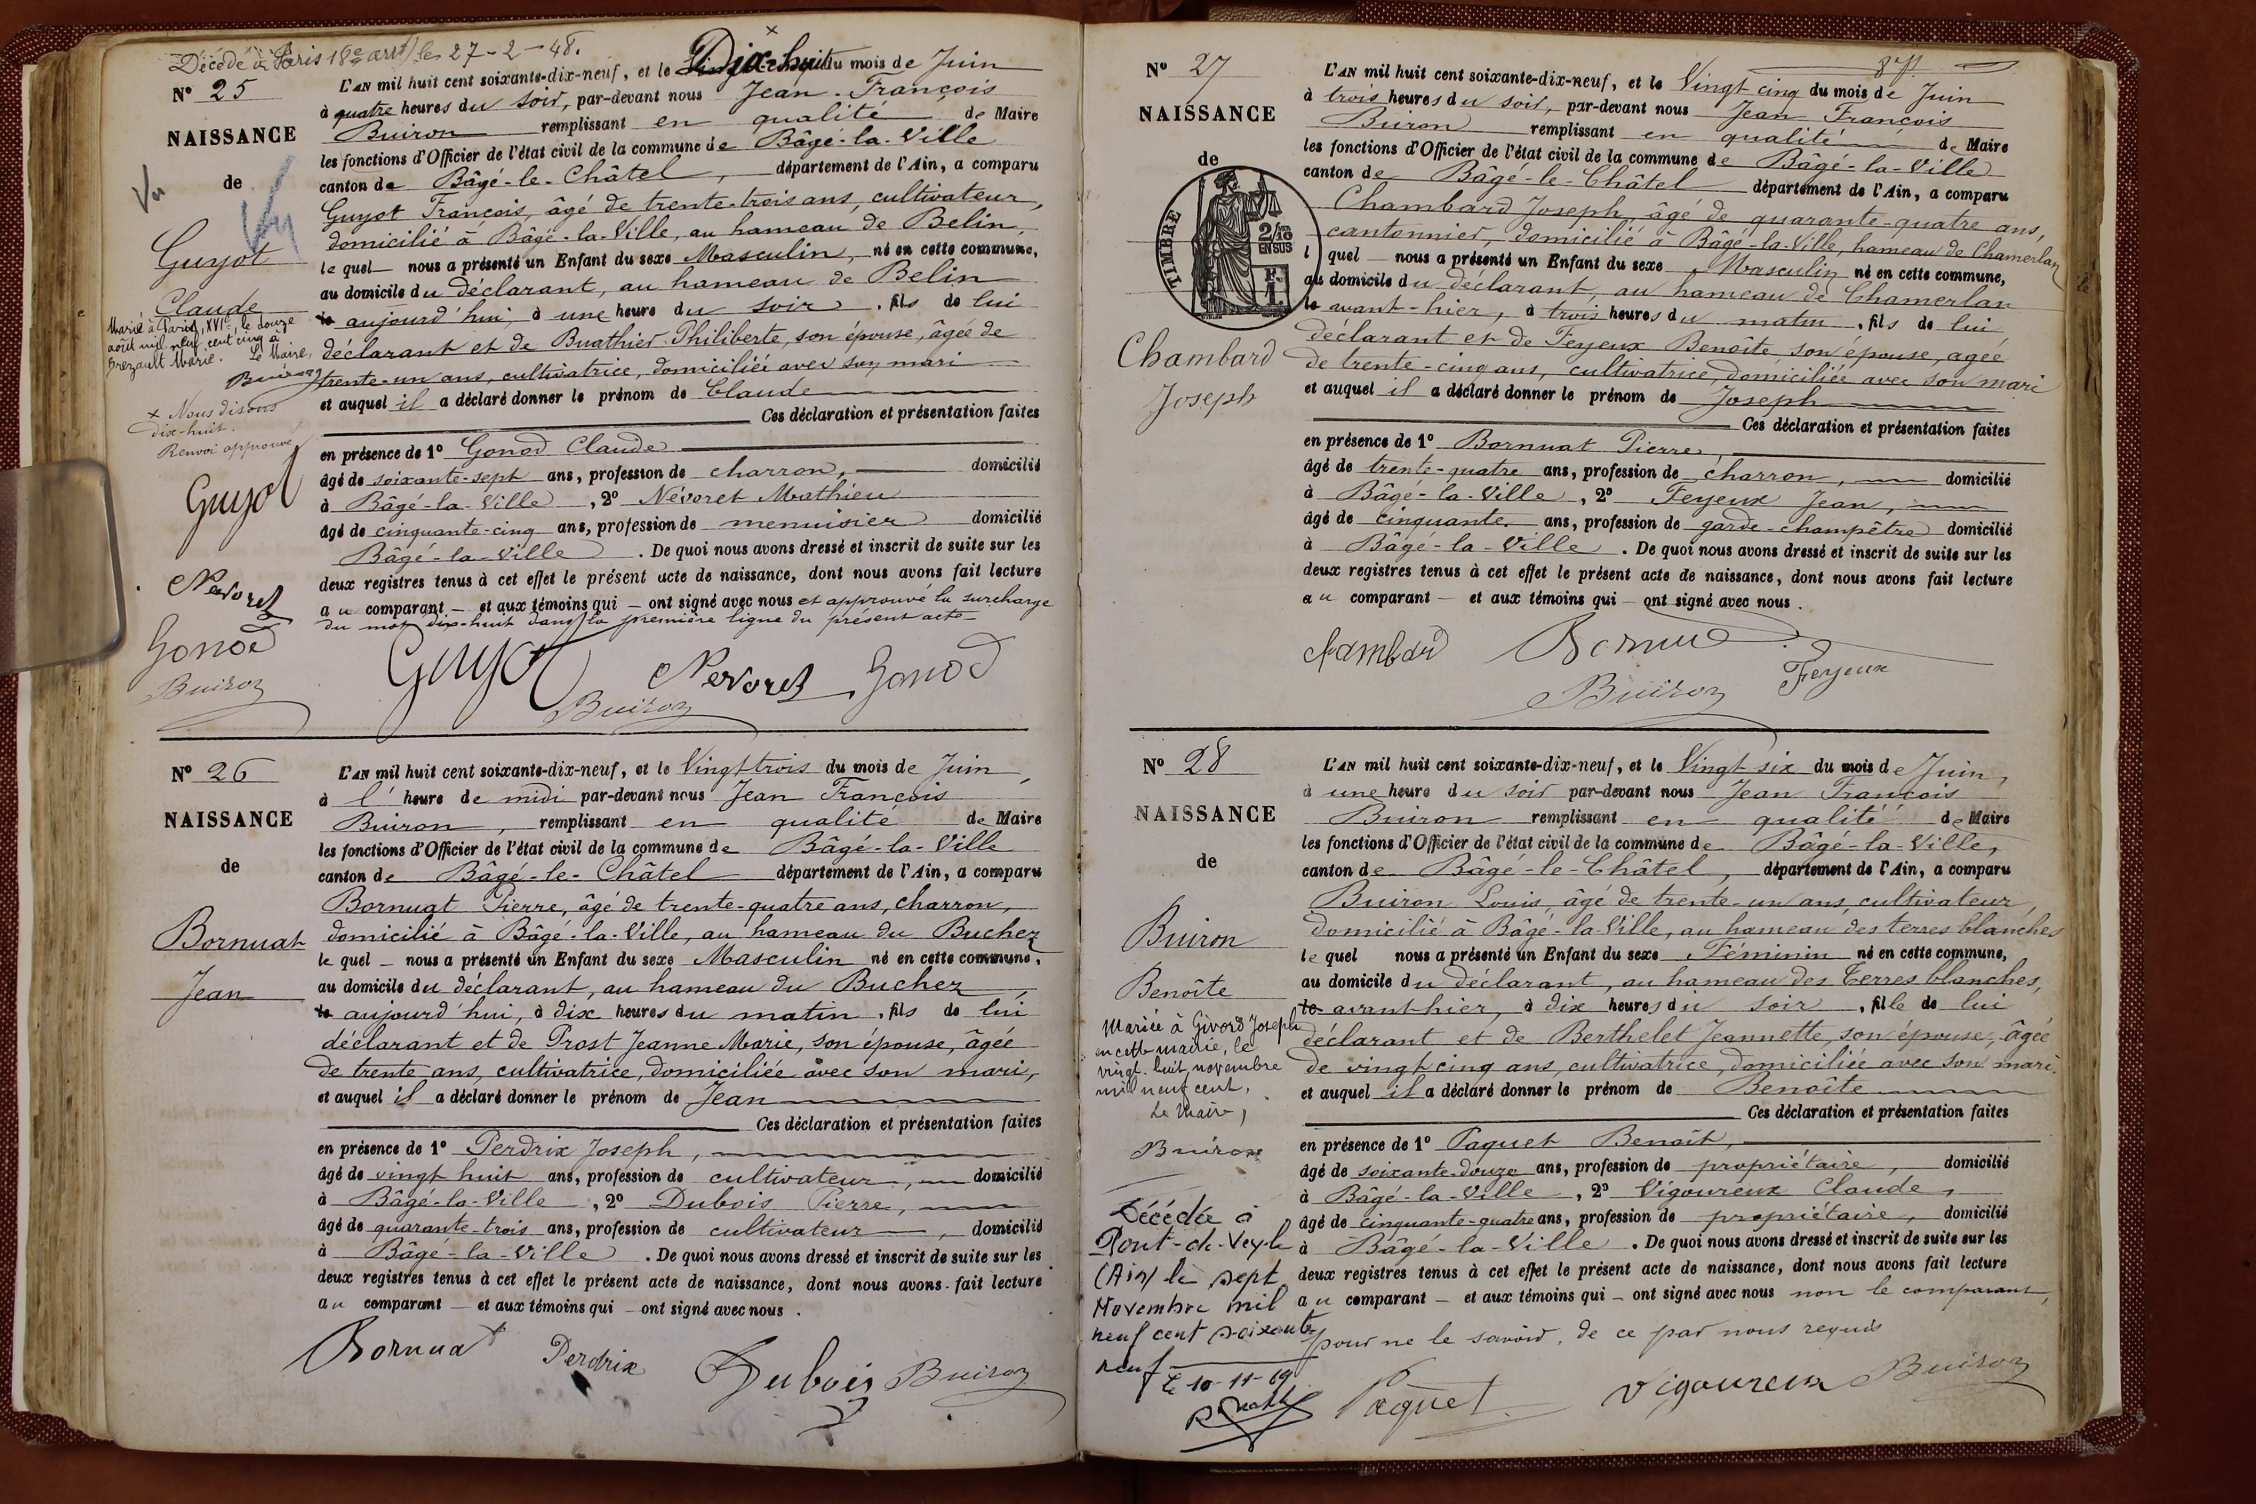 Décédé à Paris 18e arrt le 27-2-48.
N° 25
NAISSANCE
de
Vu
Vu
Guyot
Claude
Marié à Paris, XVIe, le douze
août mil neuf cent cinq à
Brezault Marie. Le Maire,
Buiron
× Nous disons
dix-huit.
Renvoi approuvé
Guyot
Nevoret
Gonod
Buiron
L'AN mil huit cent soixante-dix-neuf, et le Dix-huit du mois de Juin
à quatre heures du soir, par-devant nous Jean-François
Buiron remplissant en qualité de Maire
les fonctions d'Officier de l'état civil de la commune de Bâgé-la-Ville
canton de Bâgé-le-Châtel, département de l'Ain, a comparu
Guyot François, âgé de trente-trois ans, cultivateur,
domicilié à Bâgé-la-Ville, au hameau de Belin,
lequel nous a présenté un Enfant du sexe Masculin, né en cette commune,
au domicile du déclarant, au hameau de Belin
le aujourd'hui, à une heure du soir, fils de lui
déclarant et de Buathier Philiberte, son épouse, âgée de
trente-un ans, cultivatrice, domiciliée avec son mari
et auquel il a déclaré donner le prénom de Claude
Ces déclaration et présentation faites
en présence de 1° Gonod Claude
âgé de soixante-sept ans, profession de charron, domicilié
à Bâgé-la-Ville, 2° Névoret Mathieu
âgé de cinquante-cinq ans, profession de menuisier domicilié
Bâgé-la-Ville. De quoi nous avons dressé et inscrit de suite sur les
deux registres tenus à cet effet le présent acte de naissance, dont nous avons fait lecture
au comparant — et aux témoins qui — ont signé avec nous et approuvé la surcharge
du mot dix-huit dans la première ligne du présent acte
Guyot Nevoret Gonod
Buiron
N° 26
NAISSANCE
de
Bornuat
Jean
L'AN mil huit cent soixante-dix-neuf, et le Vingt-trois du mois de Juin,
à l'heure de midi par-devant nous Jean François
Buiron, remplissant en qualité de Maire
les fonctions d'Officier de l'état civil de la commune de Bâgé-la-Ville
canton de Bâgé-le-Châtel département de l'Ain, a comparu
Bornuat Pierre, âgé de trente-quatre ans, charron,
domicilié à Bâgé-la-Ville, au hameau du Buchez
lequel — nous a présenté un Enfant du sexe Masculin né en cette commune,
au domicile du déclarant, au hameau du Buchez,
le aujourd'hui, à dix heures du matin, fils de lui
déclarant et de Prost Jeanne Marie, son épouse, âgée
de trente ans, cultivatrice, domiciliée avec son mari,
et auquel il a déclaré donner le prénom de Jean
Ces déclaration et présentation faites
en présence de 1° Perdrix Joseph,
âgé de vingt huit ans, profession de cultivateur, domicilié
à Bâgé-la-Ville, 2° Dubois Pierre,
âgé de quarante-trois ans, profession de cultivateur, domicilié
à Bâgé-la-Ville. De quoi nous avons dressé et inscrit de suite sur les
deux registres tenus à cet effet le présent acte de naissance, dont nous avons fait lecture
au comparant — et aux témoins qui — ont signé avec nous.
Bornuat Perdrix Dubois Buiron
N° 27
NAISSANCE
de
TIMBRE
2/10
EN SUS
Chambard
Joseph
L'AN mil huit cent soixante-dix-neuf, et le Vingt cinq du mois de Juin
à trois heures du soir, par-devant nous Jean François
Buiron remplissant en qualité de Maire
les fonctions d'Officier de l'état civil de la commune de Bâgé-la-Ville
canton de Bâgé-le-Châtel département de l'Ain, a comparu
Chambard Joseph, âgé de quarante-quatre ans,
cantonnier, domicilié à Bâgé-la-Ville, hameau de Chamerlan
lquel — nous a présenté un Enfant du sexe Masculin né en cette commune,
au domicile du déclarant, au hameau de Chamerlan
le avant-hier, à trois heures du matin, fils de lui
déclarant et de Feyeux Benoîte, son épouse, agée
de trente-cinq ans, cultivatrice, domiciliée avec son mari
et auquel il a déclaré donner le prénom de Joseph
Ces déclaration et présentation faites
en présence de 1° Bornuat Pierre,
âgé de trente-quatre ans, profession de charron, domicilié
à Bâgé-la-Ville, 2° Feyeux Jean,
âgé de cinquante ans, profession de garde-champêtre domicilié
à Bâgé-la-Ville. De quoi nous avons dressé et inscrit de suite sur les
deux registres tenus à cet effet le présent acte de naissance, dont nous avons fait lecture
au comparant — et aux témoins qui — ont signé avec nous.
Chambard Bornua
Buiron Feyeux
N° 28
NAISSANCE
de
Buiron
Benoîte
Mariée à Givord Joseph
en cette mairie, le
vingt-huit novembre
mil neuf cent.
Le Maire,
Buiron
Décédée à
Pont-de-Veyle
(Ain) le sept
Novembre mil
neuf cent soixante
neuf
Le 10-11-69
L'AN mil huit cent soixante-dix-neuf, et le Vingt-six du mois de Juin,
à une heure du soir par-devant nous Jean François
Buiron remplissant en qualité de Maire
les fonctions d'Officier de l'état civil de la commune de Bâgé-la-Ville,
canton de Bâgé-le-Châtel, département de l'Ain, a comparu
Buiron Louis, âgé de trente-un ans, cultivateur,
domicilié à Bâgé-la-Ville, au hameau des terres blanches
lequel nous a présenté un Enfant du sexe Féminin né en cette commune,
au domicile du déclarant, au hameau des Terres blanches,
le avant-hier, à dix heures du soir, fille de lui
déclarant et de Berthelet Jeannette, son épouse, âgée
de vingt cinq ans, cultivatrice, domiciliée avec son mari.
et auquel il a déclaré donner le prénom de Benoîte
Ces déclaration et présentation faites
en présence de 1° Paquet Benoît,
âgé de soixante-douze ans, profession de propriétaire, domicilié
à Bâgé-la-Ville, 2° Vigoureux Claude,
âgé de cinquante-quatre ans, profession de propriétaire, domicilié
à Bâgé-la-Ville. De quoi nous avons dressé et inscrit de suite sur les
deux registres tenus à cet effet le présent acte de naissance, dont nous avons fait lecture
au comparant — et aux témoins qui — ont signé avec nous non le comparant,
pour ne le savoir, de ce par nous requis
Paquet Vigoureux Buiron